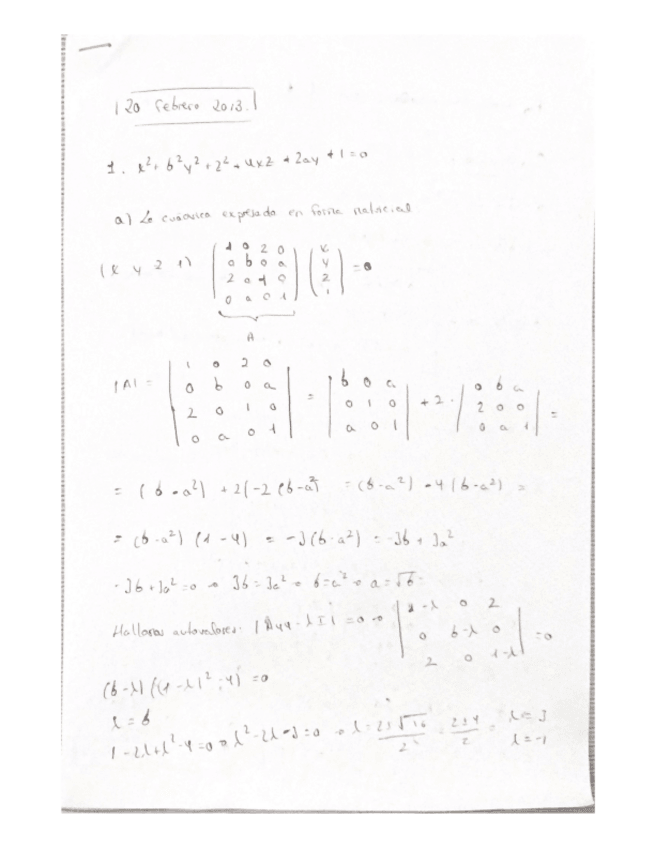 20 febrero 2013.
1. x² + b²y² + z² + 4xz + 2ay + 1 = 0
a) La expresada en forma
(x y z 1) (1 0 2 0 / 0 b 0 a / 2 0 1 0 / 0 a 0 1) (x / y / z / 1) = 0
A
|A| = |1 0 2 0 / 0 b 0 a / 2 0 1 0 / 0 a 0 1| = |b 0 a / 0 1 0 / a 0 1| + 2 · |0 b a / 2 0 0 / 0 a 1| =
= (b - a²) + 2(-2(b-a²) = (b-a²) - 4(b-a²) =
= (b-a²) (1-4) = -3(b-a²) = -3b + 3a²
-3b + 3a² = 0 ⇒ 3b = 3a² ⇒ b = a² ⇒ a = √b
Hallamos autovalores: |A₄₄ - λI| = 0 ⇒ |1-λ 0 2 / 0 b-λ 0 / 2 0 1-λ| = 0
(b-λ) ((1-λ)² - 4) = 0
λ = b
1 - 2λ + λ² - 4 = 0 ⇒ λ² - 2λ - 3 = 0 ⇒ λ = 2±√16/2 = 2±4/2 = λ = 3
λ = -1